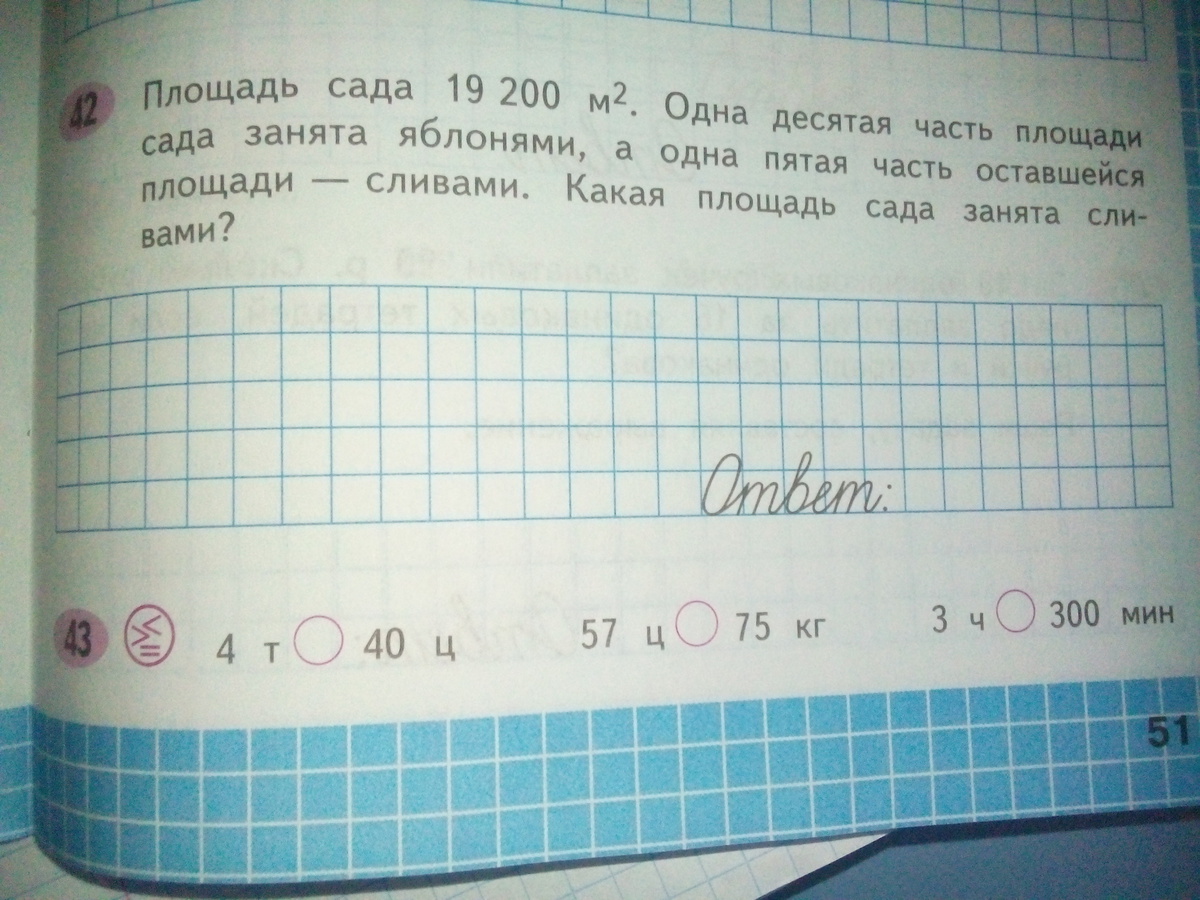 42 Площадь сада 19 200 м². Одна десятая часть площади
сада занята яблонями, а одна пятая часть оставшейся
площади — сливами. Какая площадь сада занята сли-
вами?
Ответ:
43 4 т ◯ 40 ц 57 ц ◯ 75 кг 3 ч ◯ 300 мин
51